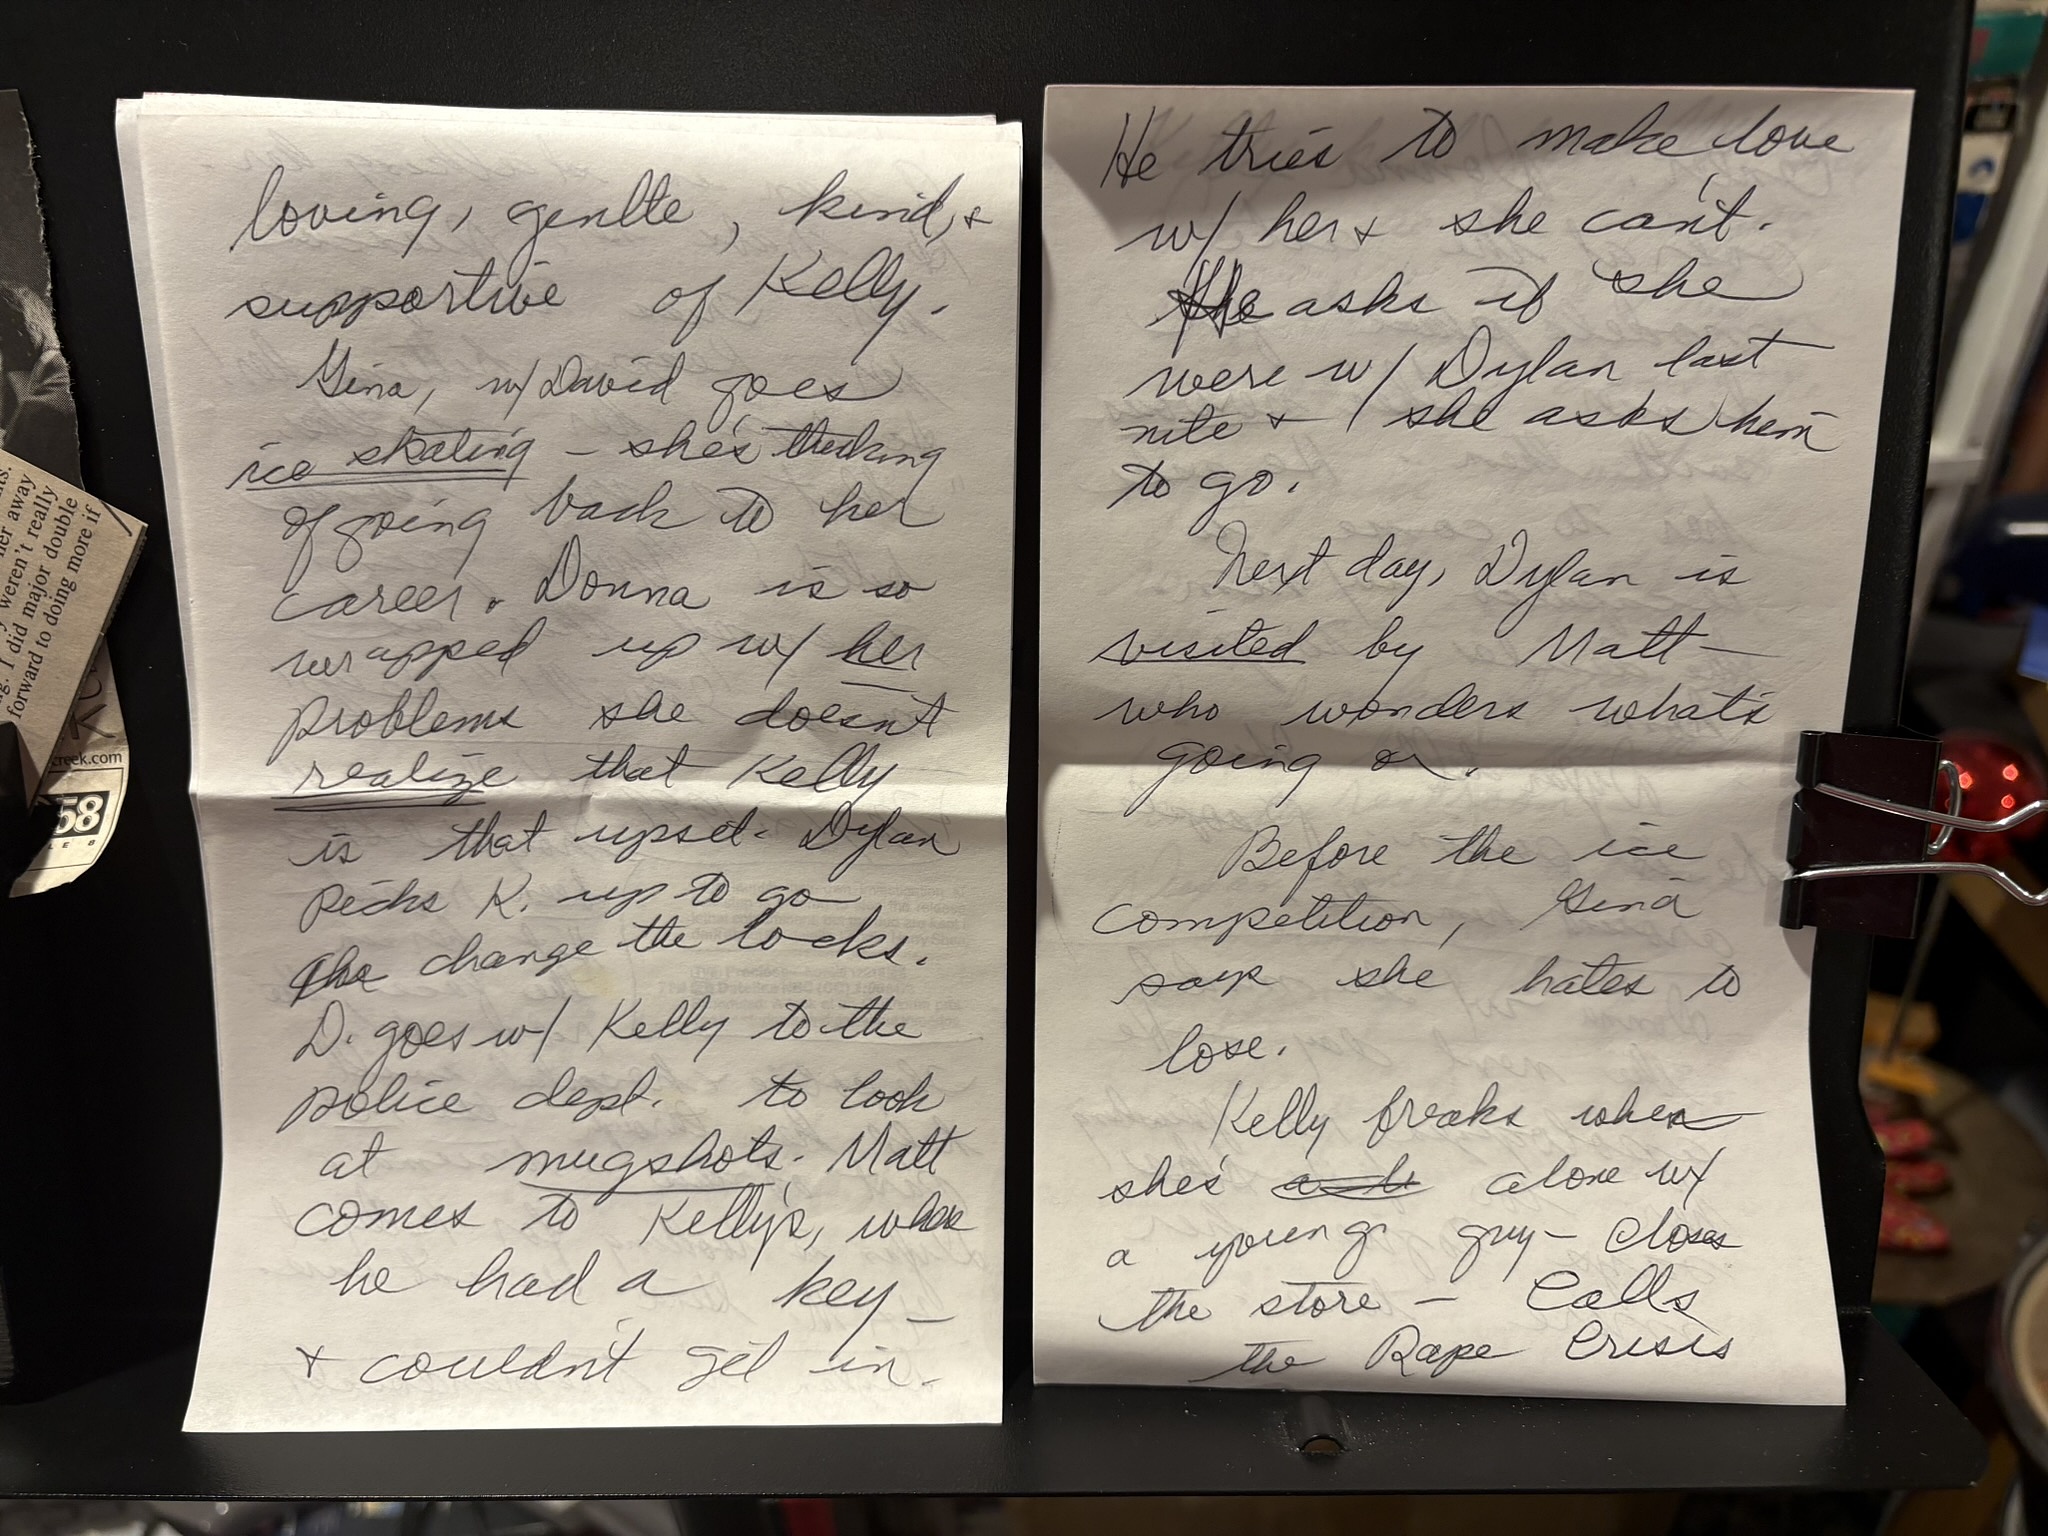 loving, genlte, kind, &
supportive of Kelly.
Gina, w/ David goes
ice skating – she's thinking
of going back to her
career. Donna is so
wrapped up w/ her
problems she doesn't
realize that Kelly
is that upset. Dylan
picks K. up to go
change the locks.
D. goes w/ Kelly to the
police dept. to look
at mugshots. Matt
comes to Kelly's,
he had a key –
& couldn't get in.
He tries to make love
w/ her & she can't.
He asks if she
were w/ Dylan last
nite & she asks him
to go.
Next day, Dylan is
visited by Matt –
who wonders what's
going on.
Before the ice
competition, Gina
says she hates to
lose.
Kelly freaks when
she's alone w/
a young guy – closes
the store – calls
the Rape Crisis
her away
weren't really
I did major double
forward to doing more if
creek.com
58